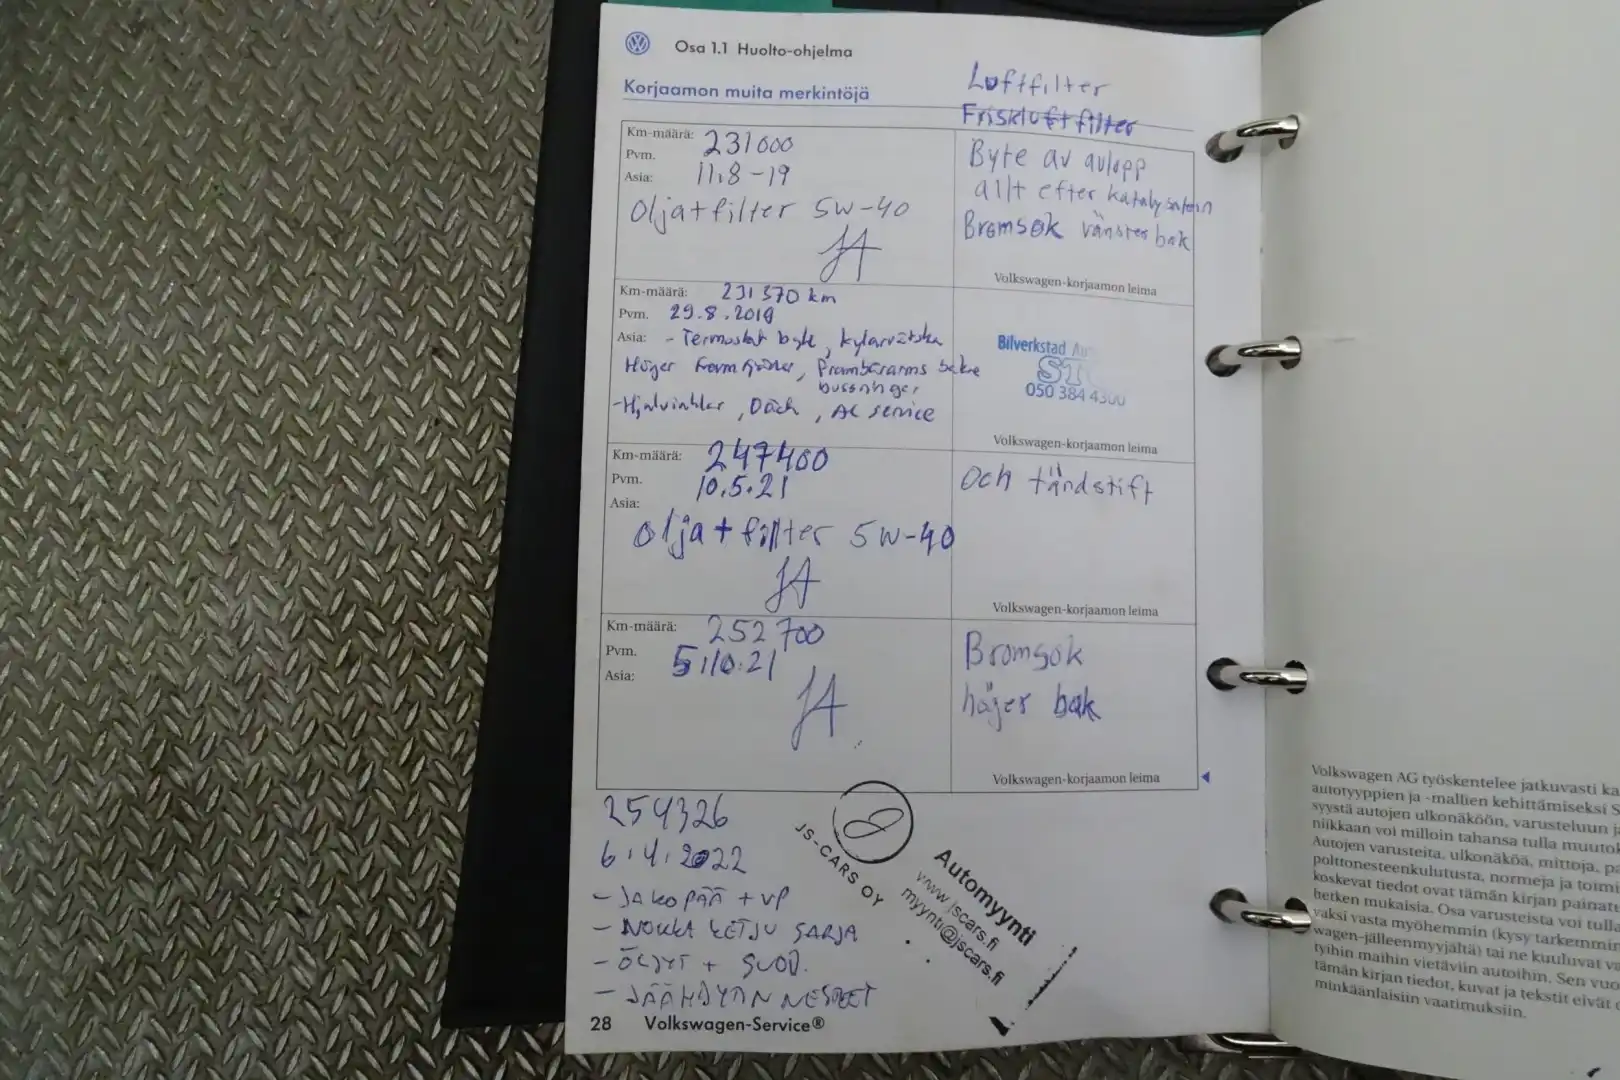 Osa 1.1 Huolto-ohjelma
Korjaamon muita merkintöjä
Luftfilter
Friskluftfilter
Km-määrä: 231000
Pvm. 11.8-19
Asia:
Olja+filter 5W-40
JA
Byte av avlopp
allt efter katalysatorn
Bromsok vänster bak
Volkswagen-korjaamon leima
Km-määrä: 231370 km
Pvm. 29.8.2019
Asia: - Termostat byte, kylarvätska
Höger fram, bakre
bussningar
- Hjulvinklar, Däck, AC service
Bilverkstad
050 384 4300
Volkswagen-korjaamon leima
Km-määrä: 247400
Pvm. 10.5.21
Asia:
Olja+filter 5W-40
JA
Och tändstift
Volkswagen-korjaamon leima
Km-määrä: 252700
Pvm. 5.10.21
Asia:
JA
Bromsok
höger bak
Volkswagen-korjaamon leima
254326
6.4.2022
- JAKOPÄÄ + VP
- NOKKA KETJU SARJA
- ÖLJYT + SUOD.
- JÄÄHDYTIN NESTEET
JS-CARS OY
Automyynti
www.jscars.fi
myynti@jscars.fi
28 Volkswagen-Service®
Volkswagen AG työskentelee jatkuvasti
autotyyppien ja -mallien kehittämiseksi
syystä autojen ulkonäköön, varusteluun
niikkaan voi milloin tahansa tulla
Autojen varusteita, ulkonäköä, mittoja,
polttonesteenkulutusta, normeja ja
koskevat tiedot ovat tämän kirjan
hetken mukaisia. Osa varusteista voi
vaksi vasta myöhemmin (kysy
wagen-jälleenmyyjältä) tai ne kuuluvat
tyihin maihin vietäviin autoihin. Sen
tämän kirjan tiedot, kuvat ja tekstit eivät
minkäänlaisiin vaatimuksiin.